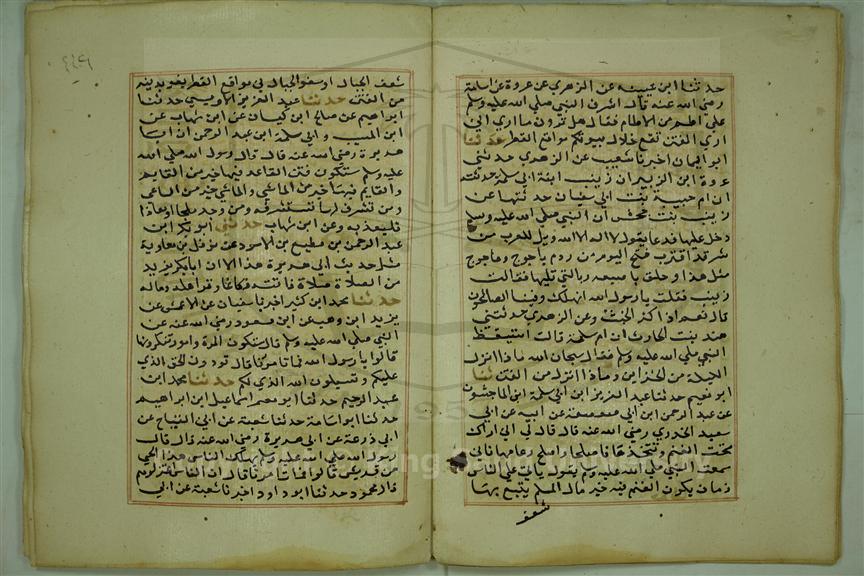 حدثنا ابن عيينه عن الزهري عن عروة عن اسامة
رضي الله عنه قال اشرف النبي صلي الله عليه وسلم
علي اطم من الاطام فقال هل ترون ما اري اني
اري الفتن تقع خلال بيوتكم مواقع القطر حدثنا
ابو اليمان اخبرنا شعيب عن الزهري حدثني
عروة ابن الزبير ان زينب ابنة ابي سلمة حدثته
ان ام حبيبة بنت ابي سفيان حدثتها عن
زينب بنت جحش ان النبي صلي الله عليه وسلم
دخل عليها فدعا يقول لا اله الا الله ويل للعرب من
شر قد اقترب فتح اليوم من ردم ياجوج وماجوج
مثل هذا وحلق باصبعه وبالتي تليها فقالت
زينب فقلت يا رسول الله انهلك وفينا الصالحون
قال نعم اذا كثر الخبث وعن الزهري حدثتني
هند بنت الحارث ان ام سلمة قالت استيقظ
النبي صلي الله عليه وسلم فقال سبحان الله ماذا انزل
الليلة من الخزاين وماذا انزل من الفتن ثنا
ابو نعيم حدثنا عبد العزيز ابن ابي سلمة بن الماجشون
عن عبد الرحمن ابن ابي صعصعة عن ابيه عن ابي
سعيد الخدري رضي الله عنه قال قال لي اني اراك
تحب الغنم وتتخذها فاصلحها واصلح رعامها فاني
سمعت النبي صلي الله عليه وسلم يقول ياتي علي الناس
زمان يكون الغنم فيه خير مال المسلم يتبع بها
شعف
شعف الجبال او سعف الجبال في مواقع القطر يفر بدينه
من الفتن حدثنا عبد العزيز الاويسي حدثنا
ابراهيم عن صالح ابن كيسان عن ابن شهاب عن
ابن المسيب وابي سلمة ابن عبد الرحمن ان ابا
هريرة رضي الله عنه قال قال رسول الله صلي الله
عليه وسلم ستكون فتن القاعد فيها خير من القايم
والقايم فيها خير من الماشي والماشي خير من الساعي
ومن تشرف لها تستشرفه ومن وجد ملجا او معاذا
فليعذ به وعن ابن شهاب حدثني ابو بكر ابن
عبد الرحمن بن مطيع بن الاسود عن نوفل بن معاوية
مثل حديث ابي هريرة هذا الا ان ابا بكر يزيد
من الصلاة صلاة فاتته فكانما وتر اهله وماله
حدثنا محمد ابن كثير اخبرنا سفيان عن الاعمش عن
يزيد ابن وهب عن ابن مسعود رضي الله عنه عن
النبي صلي الله عليه وسلم قال ستكون اثرة وامور تنكرونها
قالوا يا رسول الله فما تامرنا قال تودون الحق الذي
عليكم وتسيلون الله الذي لكم حدثنا محمد ابن
عبد الرحيم حدثنا ابو معمر اسماعيل ابن ابراهيم
حدثنا ابو اسامة حدثنا شعبة عن ابي التياح عن
ابي زرعة عن ابي هريرة رضي الله عنه قال قال
رسول الله صلي الله عليه وسلم يهلك الناس هذا الحي
من قريش قالوا فما تامرنا قال لو ان الناس اعتزلوهم
قال محمود حدثنا ابو داود اخبرنا شعبة عن ابي